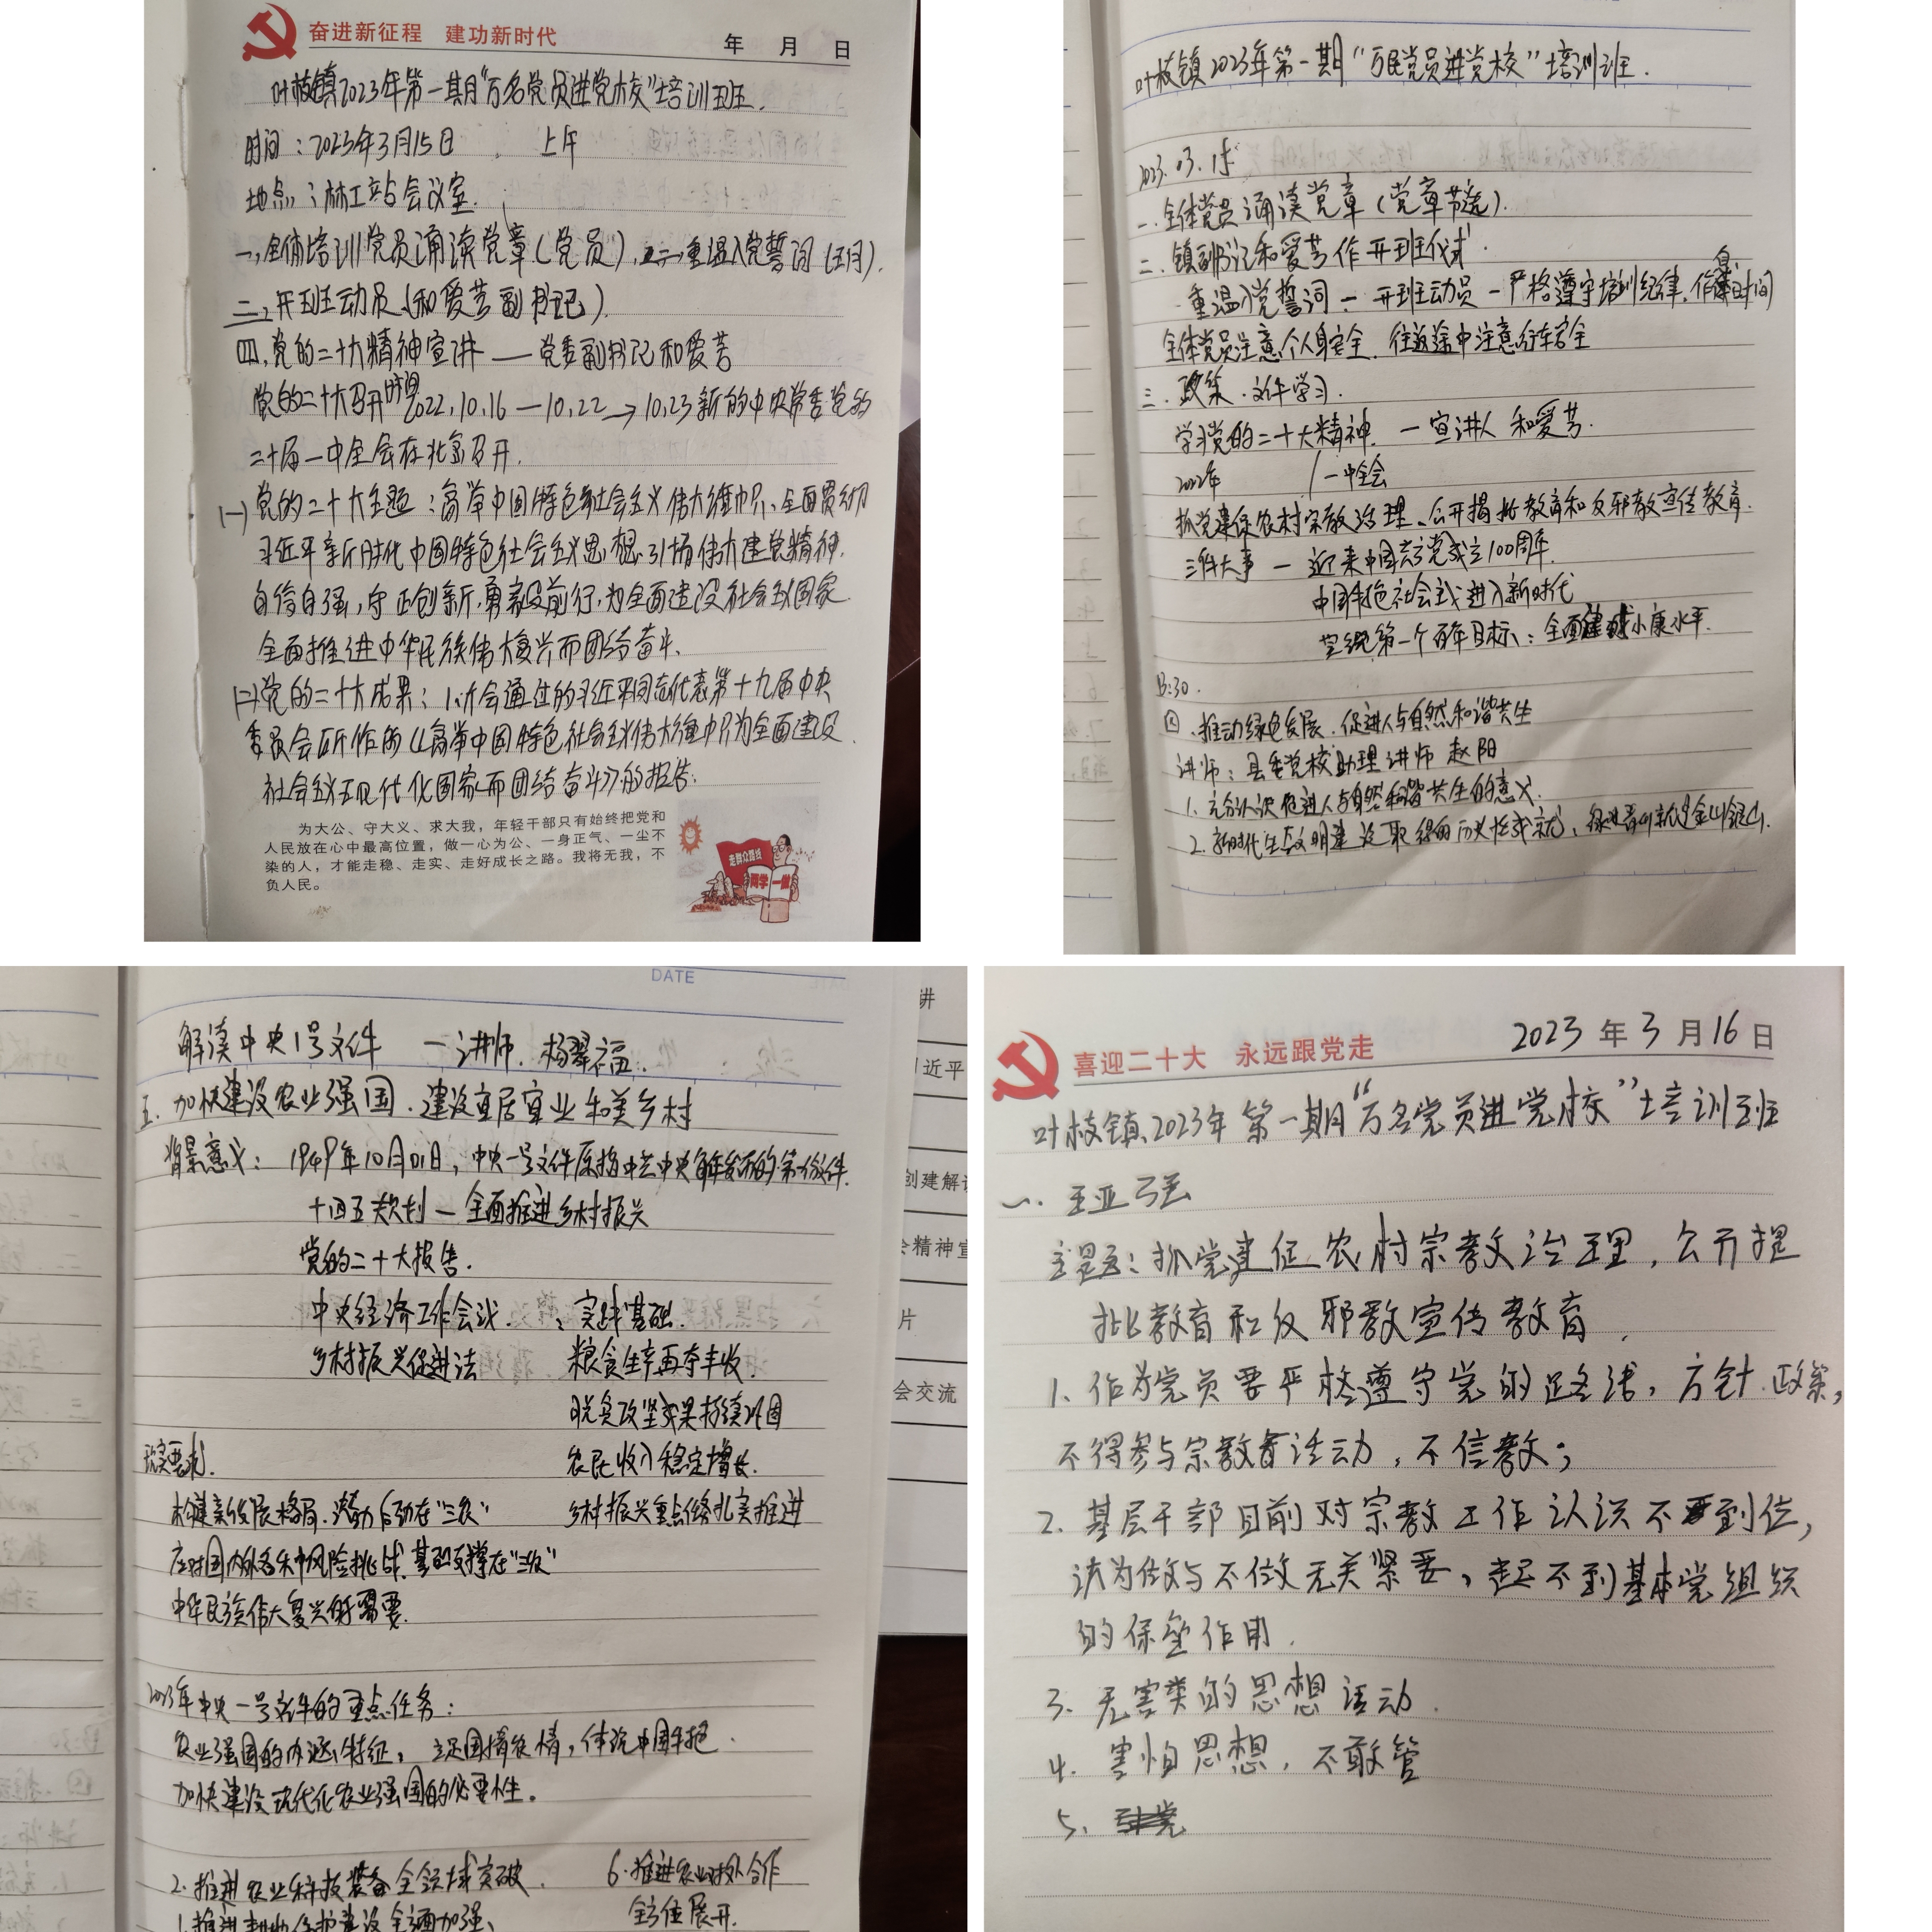 奋进新征程 建功新时代
年 月 日
叶枝镇2023年第一期“万名党员进党校”培训班.
时间：2023年3月15日 上午
地点：林工站会议室.
一,全体培训党员诵读党章(党员),二,重温入党誓词
三,开班动员(和爱芳副书记).
四,党的二十大精神宣讲——党委副书记和爱芳
党的二十大召开时间2022,10,16—10,22→10,23新的中央常委党的
二十届一中全会在北京召开.
(一)党的二十大主题：高举中国特色社会主义伟大旗帜、全面贯彻
习近平新时代中国特色社会主义思想.弘扬伟大建党精神.
自信自强,守正创新,勇毅前行,为全面建设社会主义国家
全面推进中华民族伟大复兴而团结奋斗.
(二)党的二十大成果：1.大会通过的习近平同志代表第十九届中央
委员会所作的《高举中国特色社会主义伟大旗帜为全面建设
社会主义现代化国家而团结奋斗》的报告.
为大公、守大义、求大我，年轻干部只有始终把党和
人民放在心中最高位置，做一心为公、一身正气、一尘不
染的人，才能走稳、走实、走好成长之路。我将无我，不
负人民。
走群众路线
两学一做
叶枝镇2023年第一期“万民党员进党校”培训班.
2023.03.15
一.全体党员诵读党章(党章节选).
二.镇副书记和爱芳作开班仪式.
重温入党誓词—开班动员—严格遵守培训纪律.作息时间
全体党员注意个人身安全.往返途中注意行车安全
三.政策.文件学习.
学习党的二十大精神.—宣讲人 和爱芳.
2022年 一中全会
抓党建促农村宗教治理、公开揭批教育和反邪教宣传教育.
三件大事—迎来中国共产党成立100周年.
中国特色社会主义进入新时代
完成第一个百年目标：全面建成小康水平.
13:30.
四.推动绿色发展.促进人与自然和谐共生
讲师：县委党校助理讲师 赵阳
1.充分认识促进人与自然和谐共生的意义.
2.新时代生态文明建设取得的历史性成就,绿水青山就是金山银山.
DATE
解读中央1号文件 —讲师.杨翠福.
五.加快建设农业强国.建设宜居宜业和美乡村
背景意义：1949年10月01日,中央一号文件原指中共中央每年发布的第一份文件.
十四五规划—全面推进乡村振兴
党的二十大报告.
中央经济工作会议. 实践基础.
乡村振兴促进法 粮食生产再夺丰收.
脱贫攻坚成果持续巩固
现实要求. 农民收入稳定增长.
构建新发展格局.潜力后劲在“三农” 乡村振兴重点任务扎实推进
应对国内外各种风险挑战.基础支撑在“三农”
中华民族伟大复兴的需要.
2023年中央一号文件的重点任务：
农业强国的内涵、特征，立足国情农情，体现中国特色.
加快建设现代化农业强国的必要性。
2.推进农业科技装备全领域突破. 6.推进农业对外合作
1.推进耕地保护建设全面加强、 全方位展开.
讲
习近平
创建解读
会精神宣
片
会交流
喜迎二十大 永远跟党走
2023年3月16日
叶枝镇2023年第一期“万名党员进党校”培训班
一.王亚强
主题：抓党建促农村宗教治理,公开揭
批教育和反邪教宣传教育.
1.作为党员要严格遵守党的路线,方针.政策,
不得参与宗教活动,不信教；
2.基层干部目前对宗教工作认识不到位,
认为做与不做无关紧要,起不到基本党组织
的保垒作用.
3.无害类的思想活动.
4.害怕思想,不敢管
5.